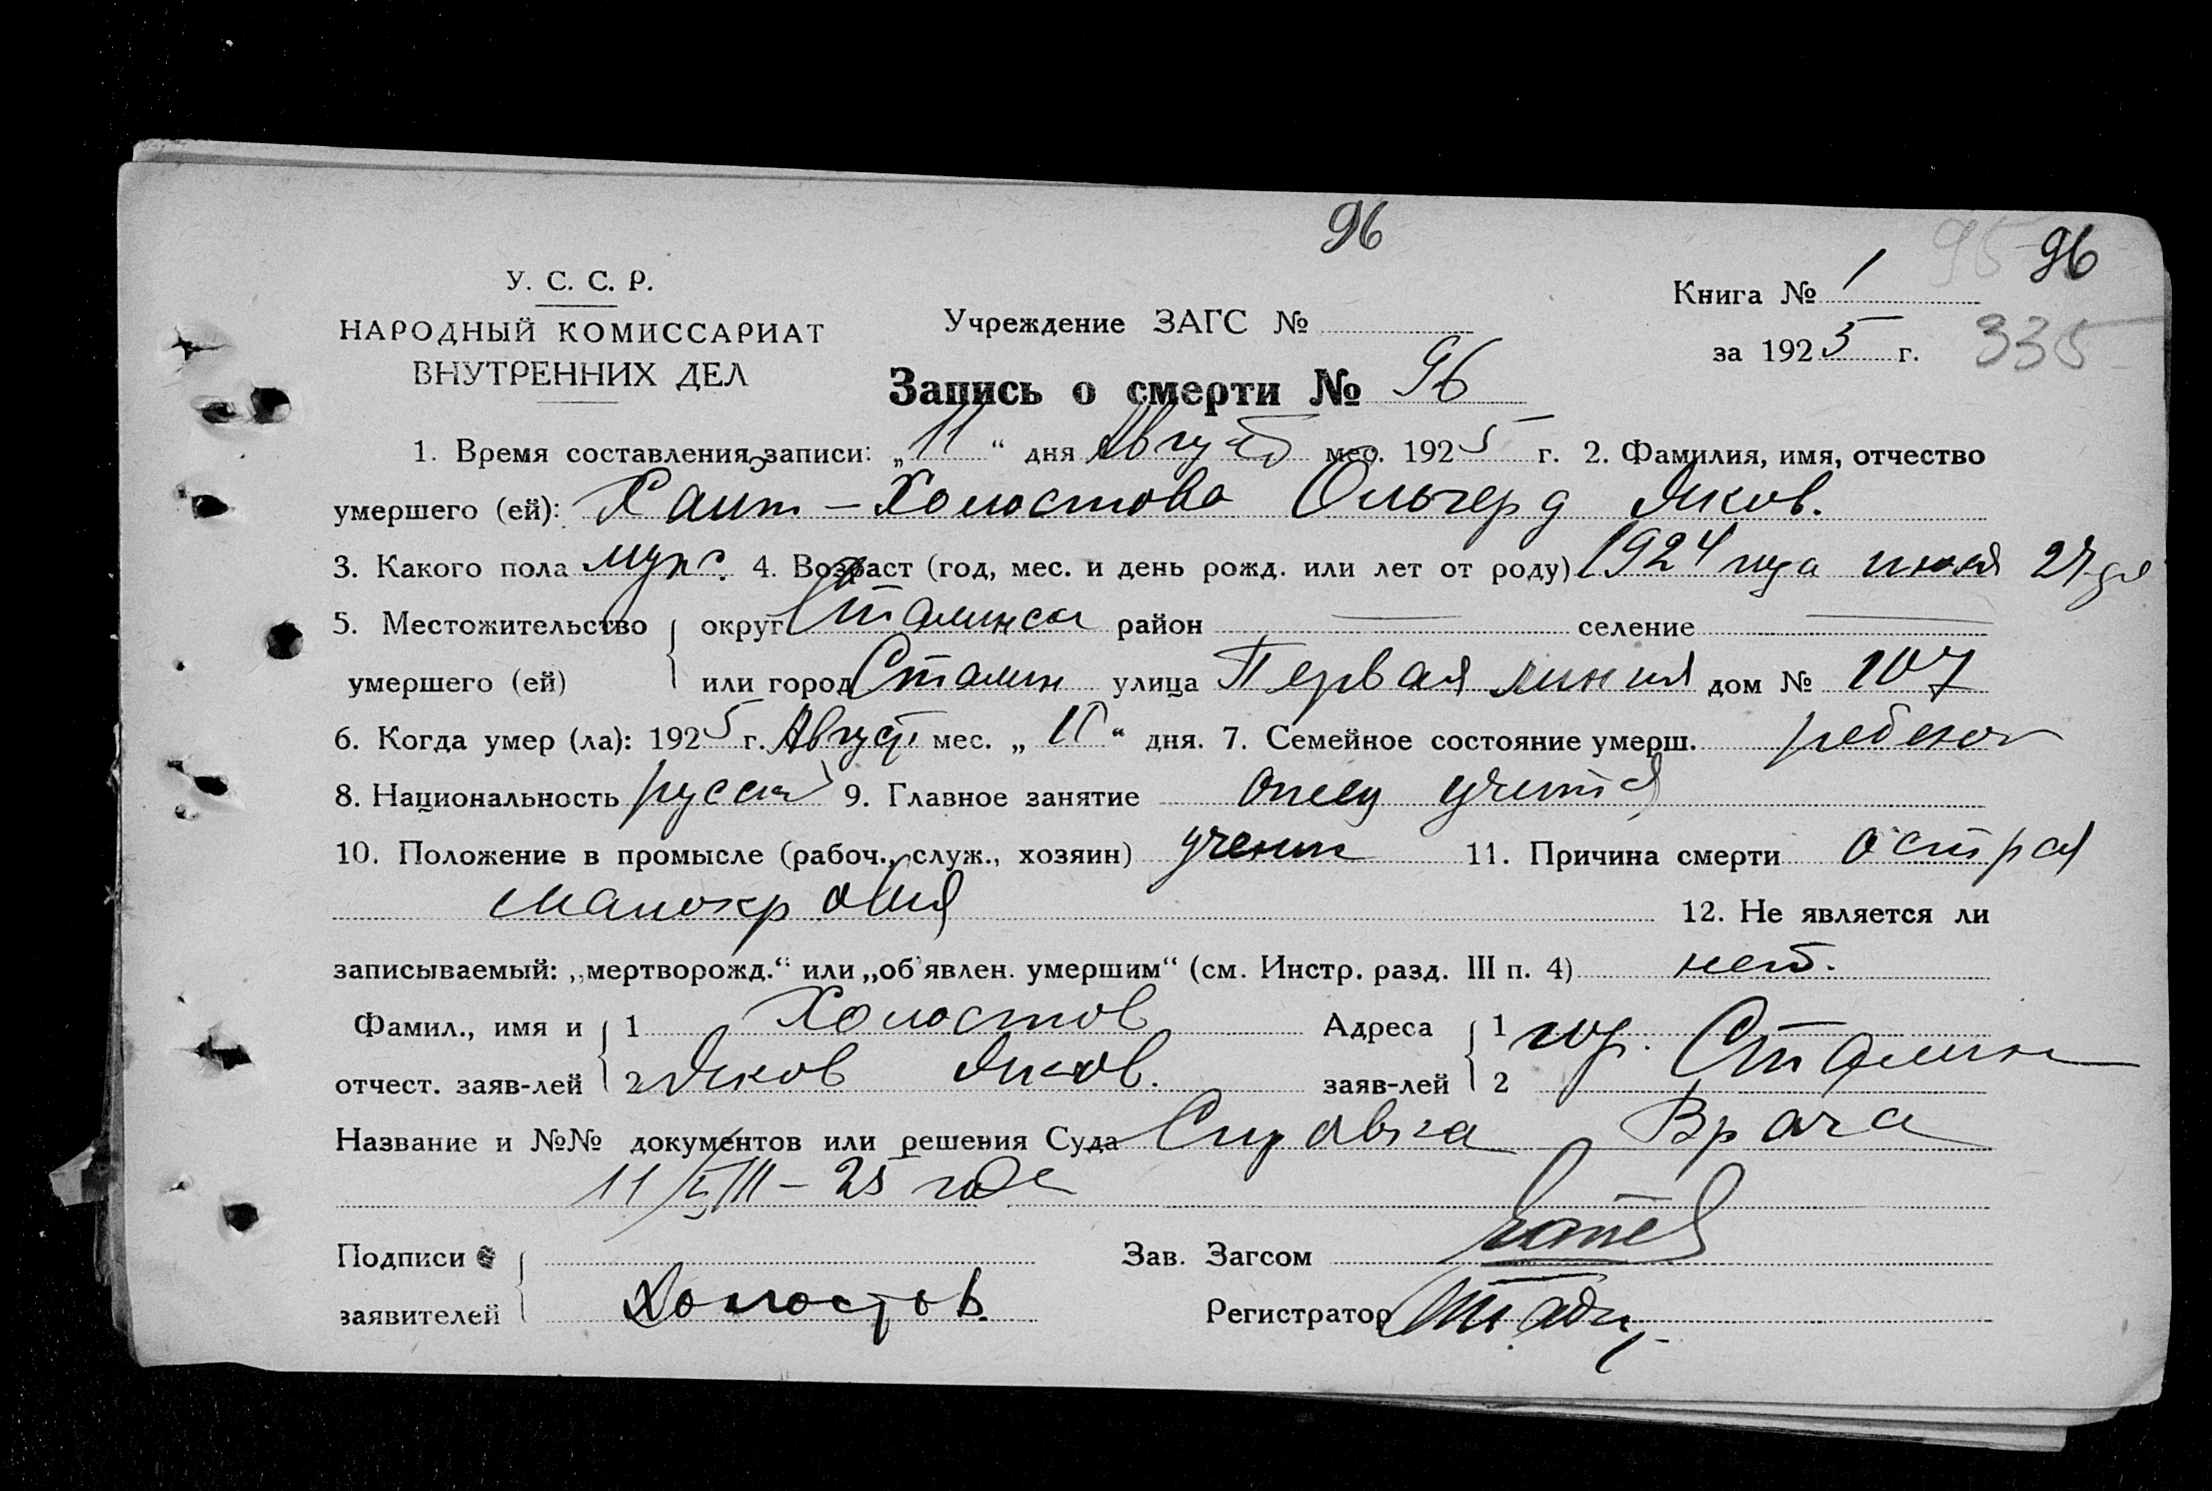 96
95 96
У. С. С. Р.
НАРОДНЫЙ КОМИССАРИАТ
ВНУТРЕННИХ ДЕЛ
Учреждение ЗАГС №
Книга № 1
за 1925 г. 335
Запись о смерти № 96
1. Время составления записи: „11“ дня Август мес. 1925 г. 2. Фамилия, имя, отчество
умершего (ей): Хаит-Холостова Ольгерд Яков.
3. Какого пола муж. 4. Возраст (год, мес. и день рожд. или лет от роду) 1924 года июля 27 дня
5. Местожительство округ Сталинск район — селение —
умершего (ей) или город Сталин улица Первая линия дом № 107
6. Когда умер (ла): 1925 г. Август мес. „11“ дня. 7. Семейное состояние умерш. ребенок
8. Национальность русский 9. Главное занятие отец
10. Положение в промысле (рабоч., служ., хозяин) 11. Причина смерти острая
малокровия 12. Не является ли
записываемый: „мертворожд.“ или „об'явлен. умершим“ (см. Инстр. разд. III п. 4) нет.
Фамил., имя и 1 Холостов Адреса 1 гор. Сталин
отчест. заяв-лей 2 Яков Яков. заяв-лей 2
Название и №№ документов или решения Суда Справка Врача
11/VIII-25 года
Подписи Зав. Загсом
заявителей Холостов. Регистратор